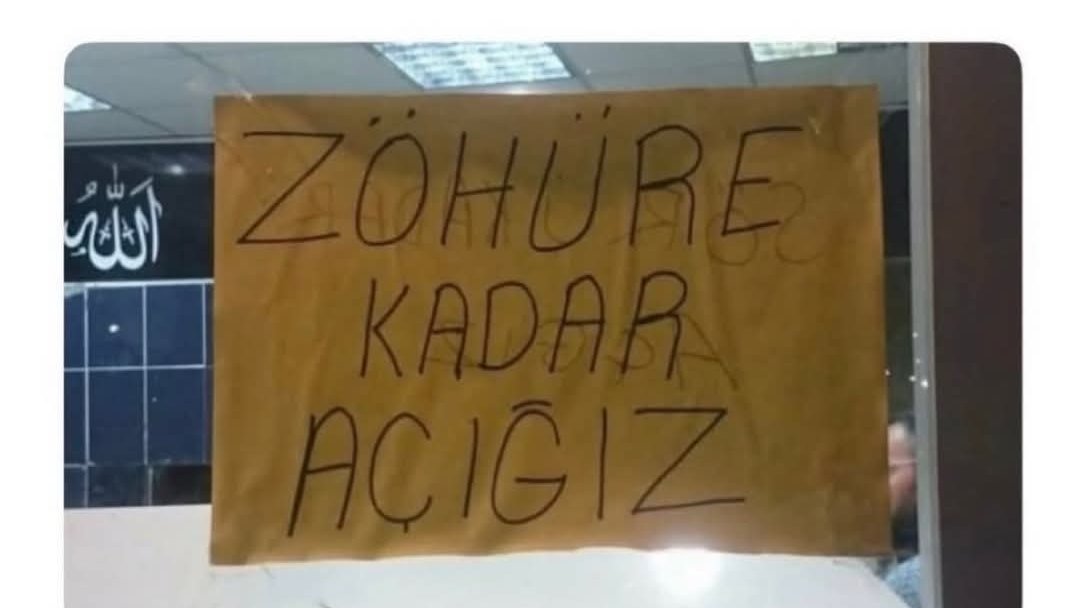 ZÖHÜRE
KADAR
AÇIĞIZ
اللّٰهُ